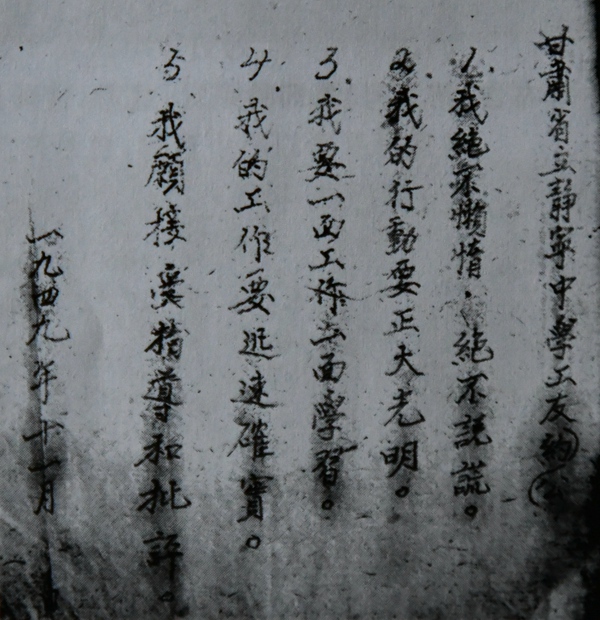 甘肅省立靜寧中學工友約
1.我絕不懶惰,絕不說謊。
2.我的行動要正大光明。
3.我要一面工作一面學習。
4.我的工作要迅速確實。
5我願接受指導和批評。
一九四九年十一月